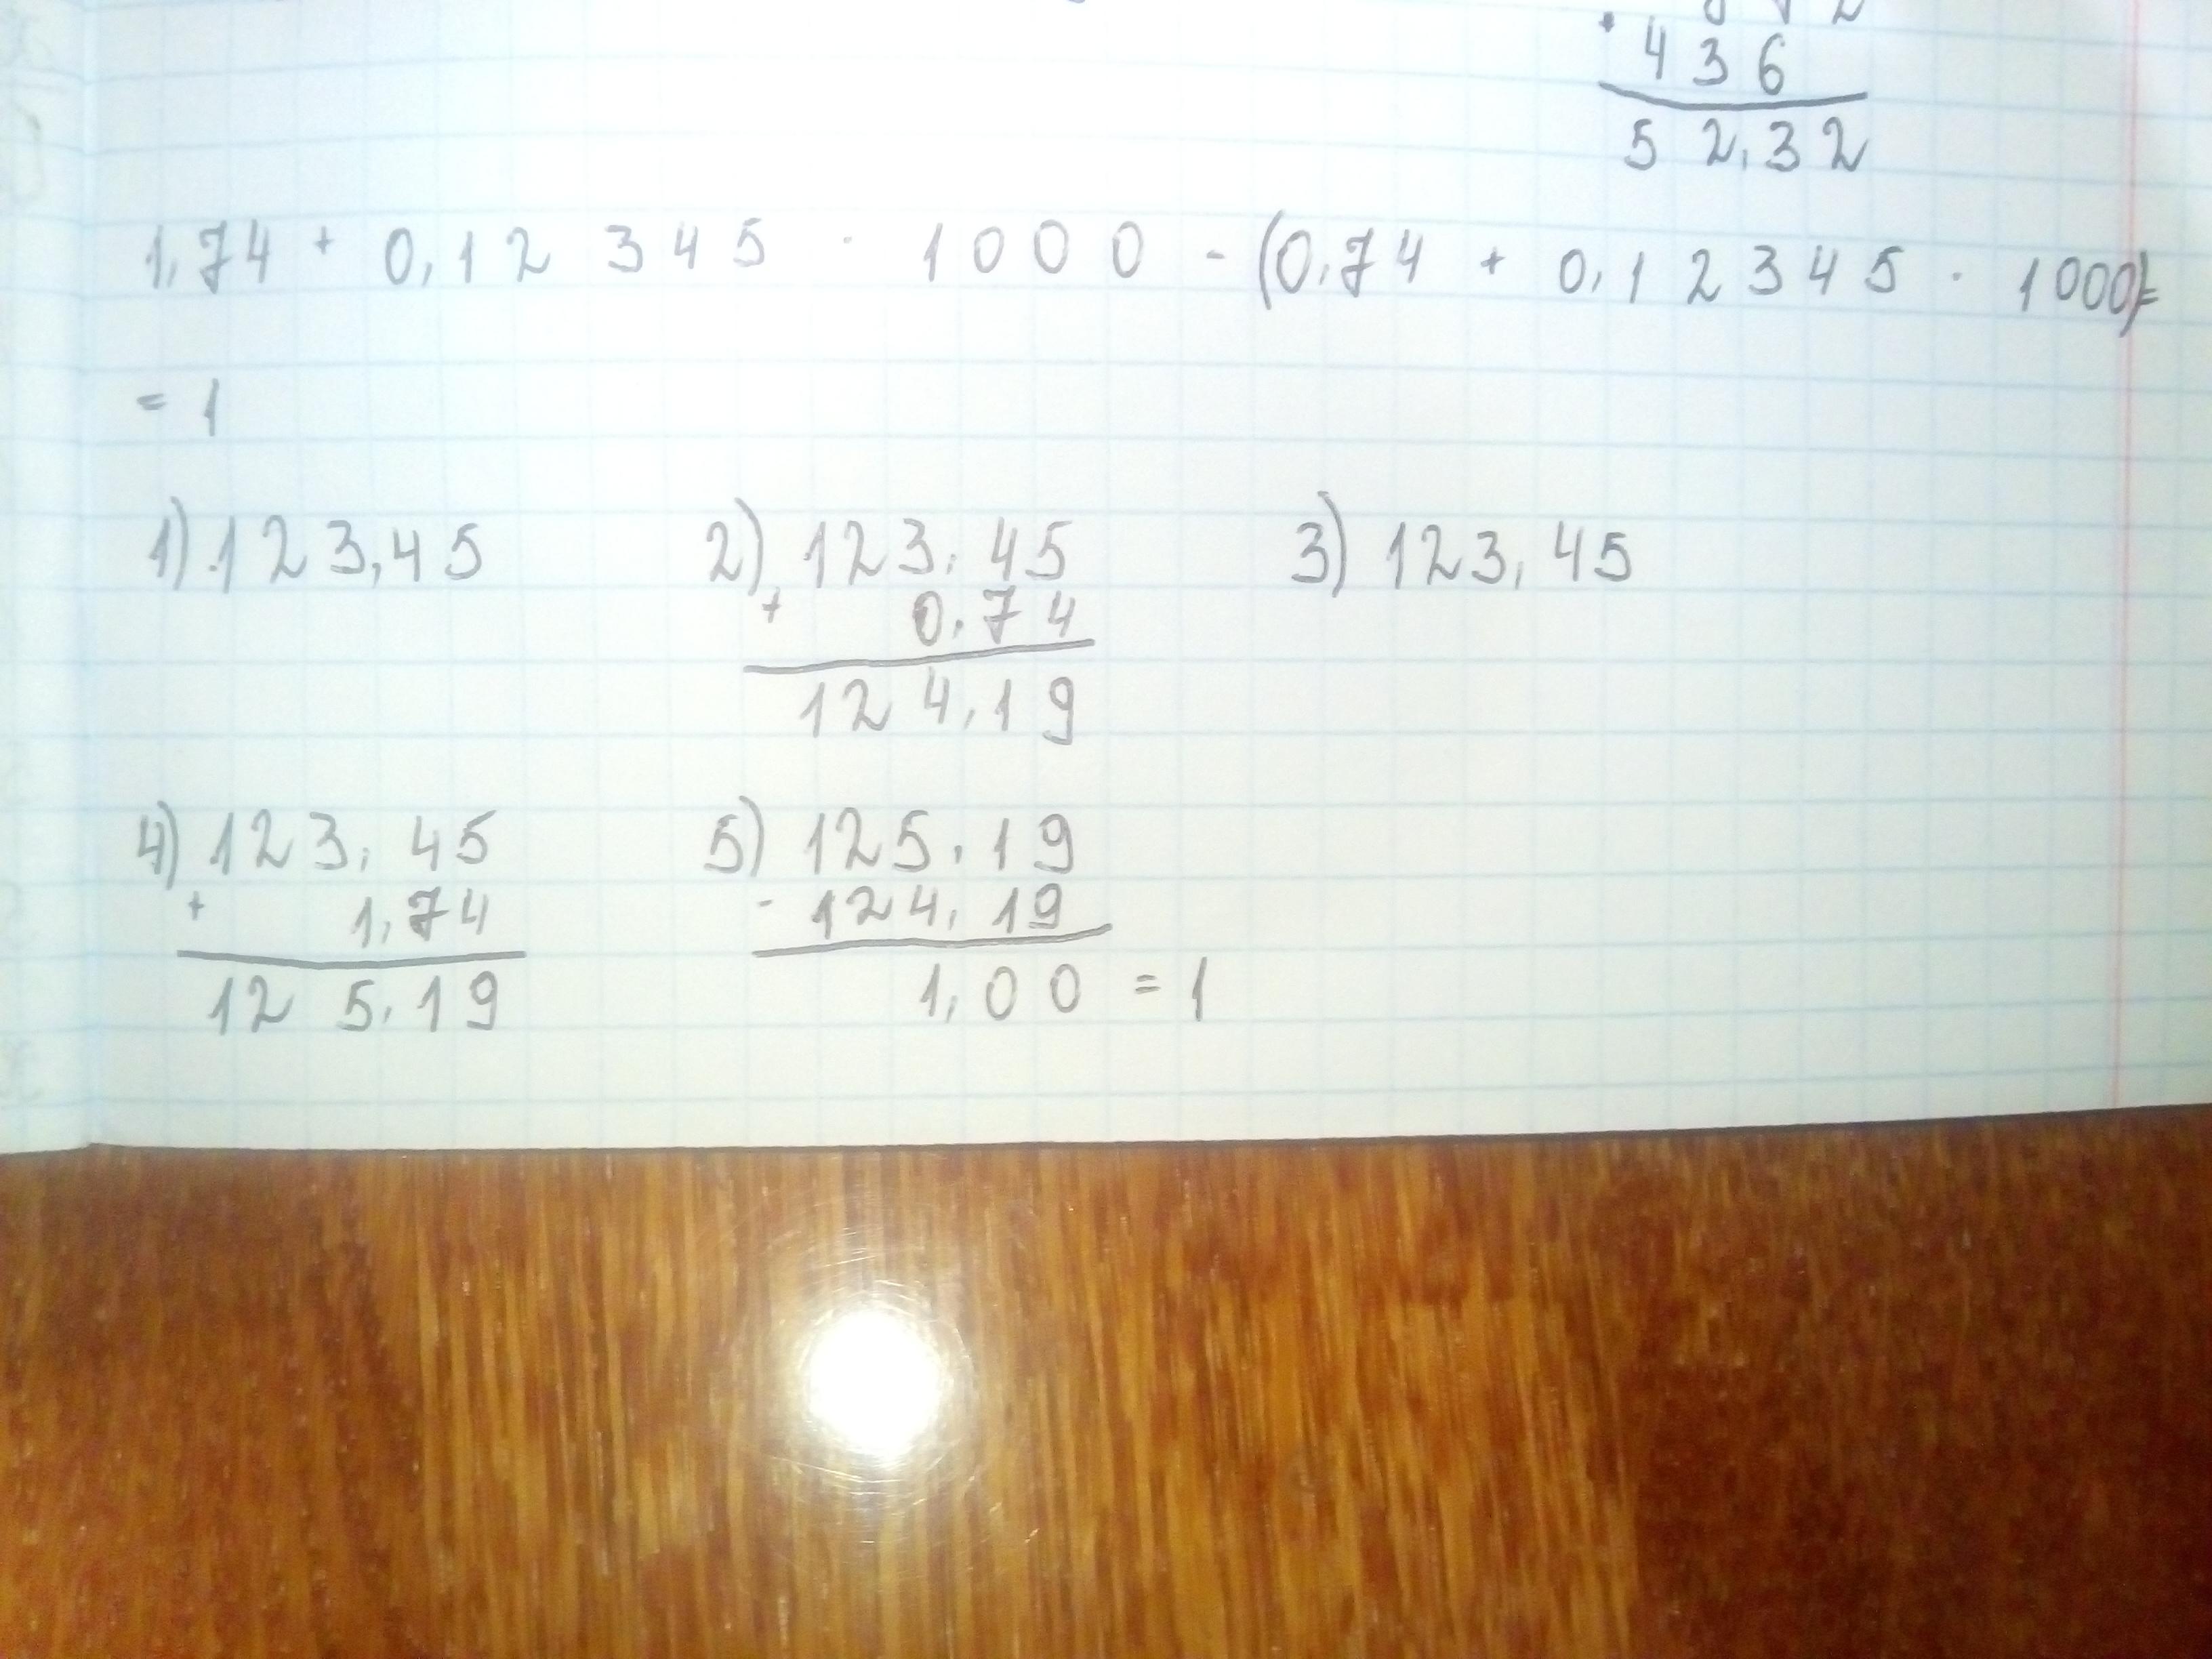 + 436
52,32
1,74 + 0,12345 · 1000 - (0,74 + 0,12345 · 1000) =
= 1
1) 123,45 2) 123,45 3) 123,45
+ 0,74
124,19
4) 123,45 5) 125,19
+ 1,74 - 124,19
125,19 1,00 = 1